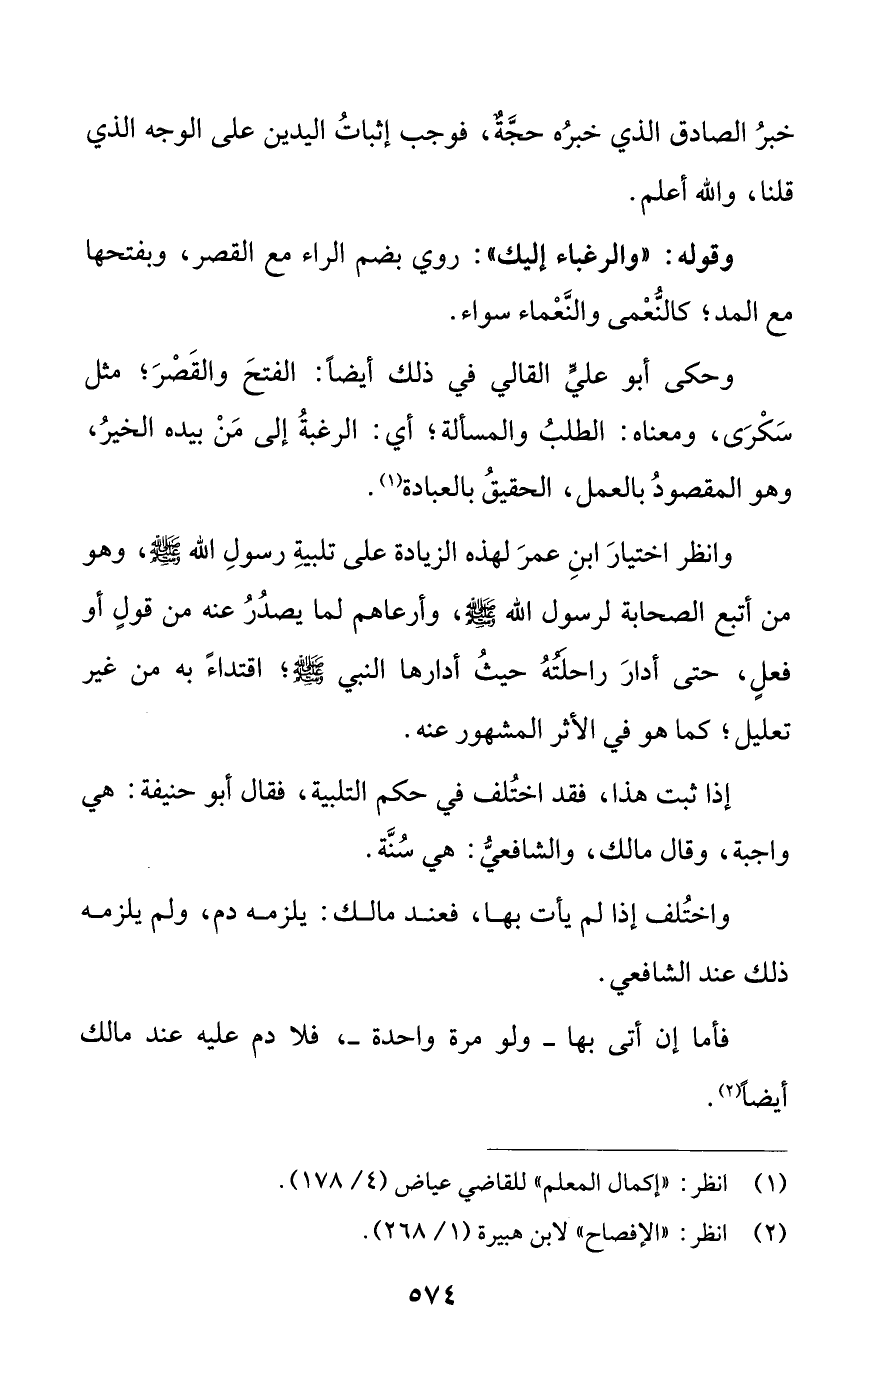 خبرُ الصادق الذي خبرُه حجَّةٌ، فوجب إثباتُ اليدين على الوجه الذي
قلنا، والله أعلم.
وقوله: «والرغباء إليك»: روي بضم الراء مع القصر، وبفتحها
مع المد؛ كالنُّعْمى والنَّعْماء سواء.
وحكى أبو عليٍّ القالي في ذلك أيضاً: الفتحَ والقَصْرَ؛ مثل
سَكْرَى، ومعناه: الطلبُ والمسألة؛ أي: الرغبةُ إلى مَنْ بيده الخيرُ،
وهو المقصودُ بالعمل، الحقيقُ بالعبادة(١).
وانظر اختيارَ ابنِ عمرَ لهذه الزيادة على تلبيةِ رسولِ الله ﷺ، وهو
من أتبع الصحابة لرسول الله ﷺ، وأرعاهم لما يصدُرُ عنه من قولٍ أو
فعلٍ، حتى أدارَ راحلَتُهُ حيثُ أدارها النبي ﷺ؛ اقتداءً به من غير
تعليل؛ كما هو في الأثر المشهور عنه.
إذا ثبت هذا، فقد اختُلف في حكم التلبية، فقال أبو حنيفة: هي
واجبة، وقال مالك، والشافعيُّ: هي سُنَّة.
واختُلف إذا لم يأت بهـا، فعنـد مالـك: يلزمـه دم، ولـم يلزمـه
ذلك عند الشافعي.
فأما إن أتى بها ـ ولو مرة واحدة ـ، فلا دم عليه عند مالك
أيضاً(٢).
(١) انظر: «إكمال المعلم» للقاضي عياض (٤/ ١٧٨).
(٢) انظر: «الإفصاح» لابن هبيرة (١/ ٢٦٨).
٥٧٤